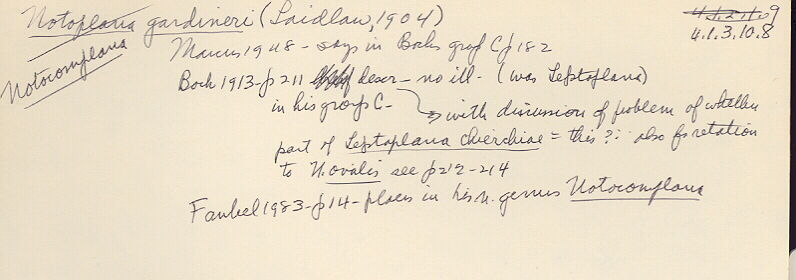 Notoplana gardineri (Laidlaw, 1904)
4.1.3.10.8
Notocomplana
Marcus 1948 - says in Bocks group C p 182
Bock 1913 - p 211 descr - no ill - (was Leptoplana)
in his group C -
with discussion of problem of whether
part of Leptoplana chierchiae = this ?; also for relation
to N. ovalis see p 212-214
Faubel 1983 - p 14 - places in his n. genus Notocomplana